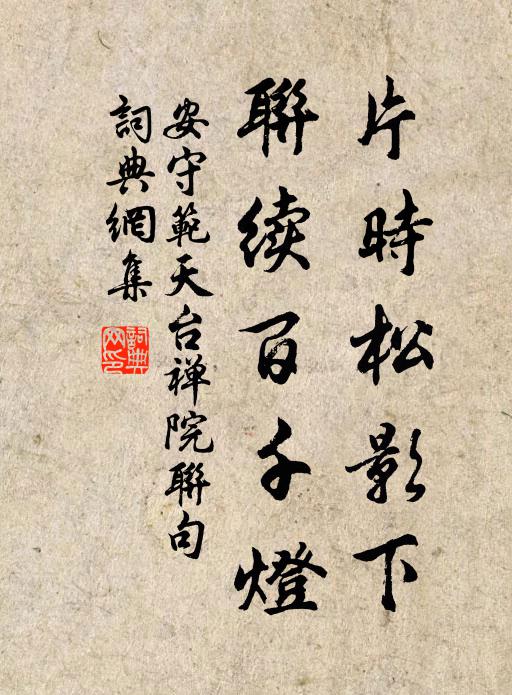 片時松影下
聯续百千燈
安守範天台禅院聯句
詞典網集
詞典
网印